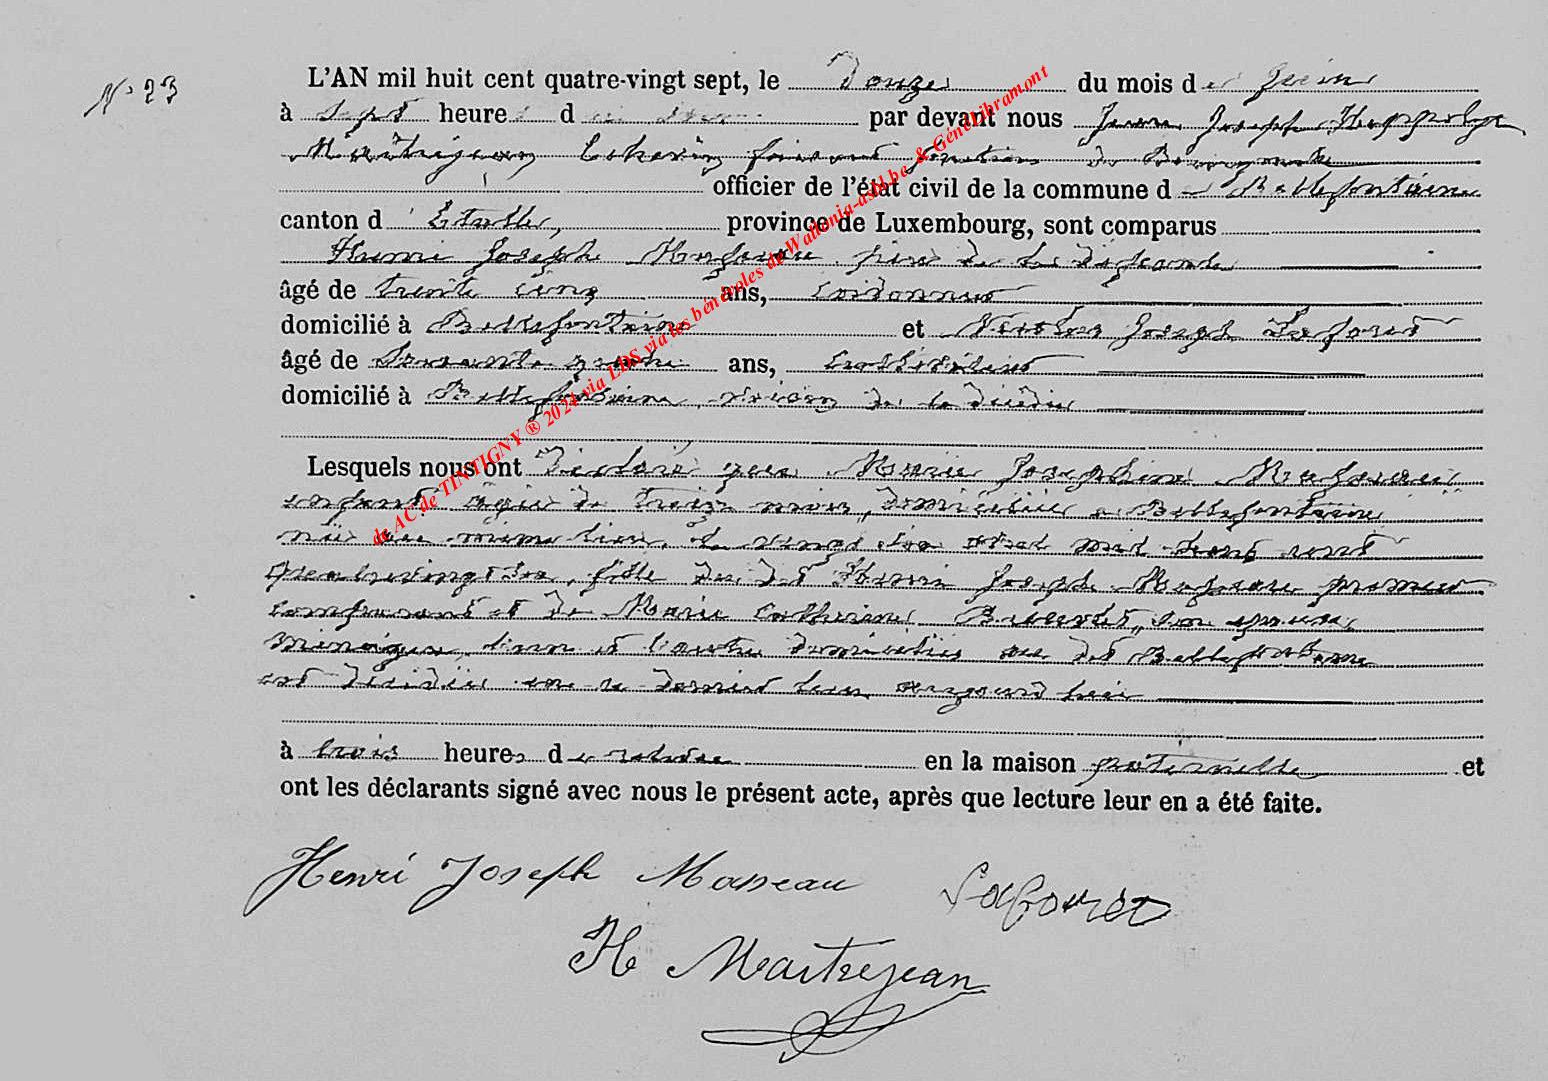 N° 23
L'AN mil huit cent quatre-vingt sept, le Douze du mois de Juin
à sept heures du par devant nous Jean Joseph Hyppolyte
Maîtrejean Echevin faisant fonction de Bourgmestre
officier de l'état civil de la commune de Bellefontaine
canton d'Etalle, province de Luxembourg, sont comparus
Henri Joseph Masseau père de la défunte
âgé de trente cinq ans, cordonnier
domicilié à Bellefontaine et Nicolas Joseph Lafouret
âgé de ans, cultivateur
domicilié à Bellefontaine, voisin de la décédée
Lesquels nous ont déclaré que Marie Joséphine Masseau
enfant âgée de mois, domiciliée à Bellefontaine
née au même lieu, le mil huit cent
quatrevingt six, fille du dit Henri Joseph Masseau premier
comparant et de Marie Catherine son épouse
ménagère, l'un et l'autre domiciliés au dit Bellefontaine
est décédée en ce dernier lieu aujourd'hui
à trois heures de relevée en la maison paternelle et
ont les déclarants signé avec nous le présent acte, après que lecture leur en a été faite.
Henri Joseph Masseau Lafouret
H Maitrejean
de AC de TINTIGNY ® 2024 via LDS via les bénévoles de Wallonia-asbl.be & GénéLibramont